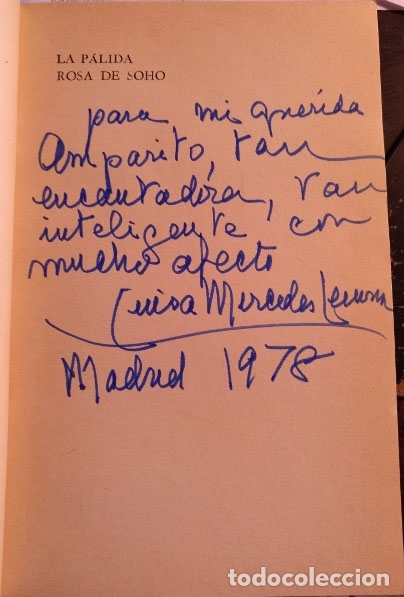 LA PÁLIDA
ROSA DE SOHO
para mi querida
Amparito, tan
encantadora, tan
inteligente con
mucho afecto
Luisa Mercedes Levinson
Madrid 1978
todocoleccion